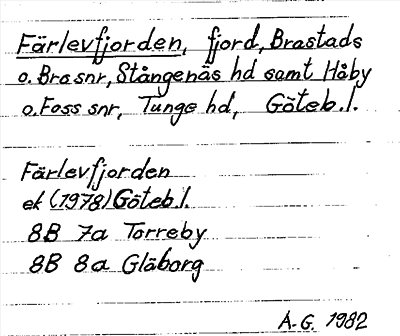 Färlevfjorden, fjord, Brastads
o. Bro snr, Stångenäs hd samt Håby
o. Foss snr, Tunge hd, Göteb.l.
Färlevfjorden
ek (1978) Göteb.l.
8B 7a Torreby
8B 8a Glåborg
A.G. 1982